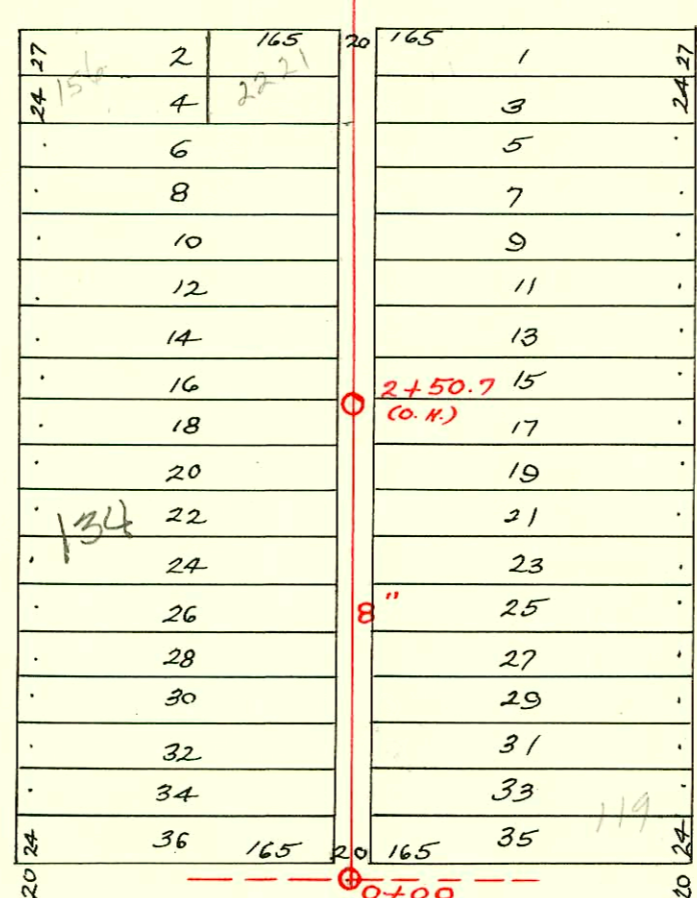 27 2 165 20 165 1 27
156 2221
24 4 3 24
6 5
8 7
10 9
12 11
14 13
16 2+50.7 15
(O.H.)
18 17
20 19
134 22 21
24 23
26 8" 25
28 27
30 29
32 31
34 33
119
24 36 165 20 165 35 24
20 0+00 20